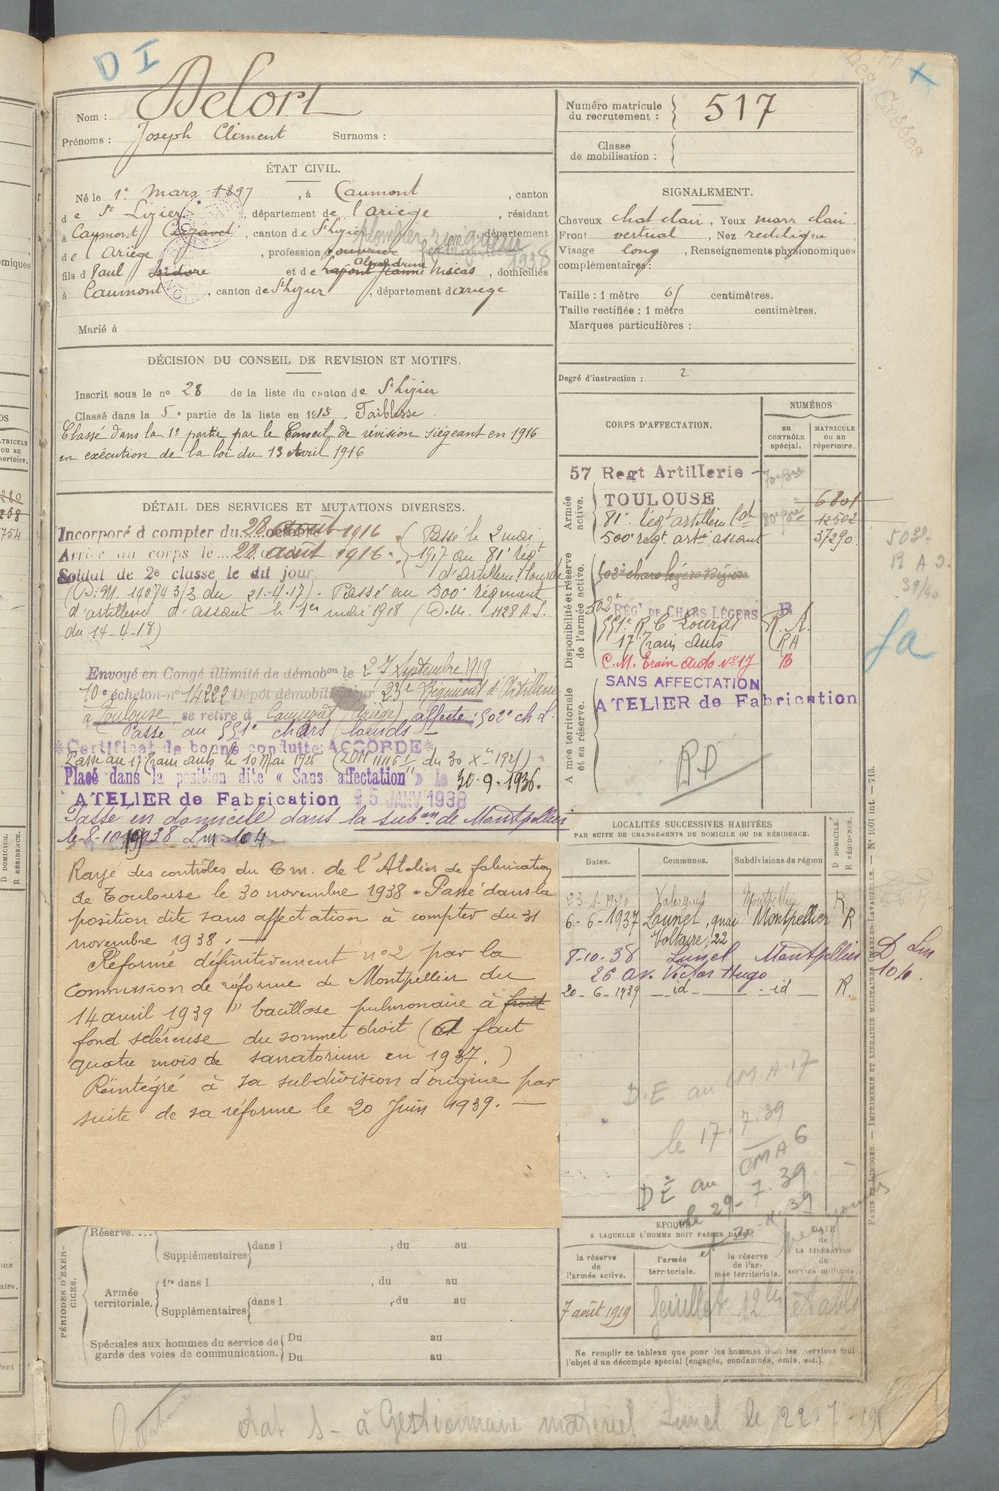 D I
Nom : Delort
Prénoms : Joseph Clément Surnoms :
ÉTAT CIVIL.
Né le 1er mars 1897, à Caumont, canton
de St Lizier, département de l'ariège, résidant
à Caumont, canton de St Lizier, département
de l'Ariège, profession
1938
fils de Paul Isidore et de Jeanne Mocas, domiciliés
à Caumont, canton de St Lizier, département d'ariège
Marié à
DÉCISION DU CONSEIL DE REVISION ET MOTIFS.
Inscrit sous le n° 28 de la liste du canton de St Lizier
Classé dans la 5e partie de la liste en 1915. Faiblesse
Classé dans la 1e partie par le Conseil de révision siégeant en 1916
en exécution de la loi du 13 Avril 1916
DÉTAIL DES SERVICES ET MUTATIONS DIVERSES.
Incorporé à compter du 28 août 1916
Arrivé au corps le 28 août 1916.
Soldat de 2e classe le dit jour
Passé le 2 mai
1917 au 81e régt
d'Artillerie lourde
(D.M. 14074 3/3 du 21-4-17). Passé au 500e Régiment
d'artillerie d'assaut le 1er mai 1918 (D.M. 1428 A.S.
du 14-4-18)
Envoyé en Congé illimité de démobon le 27 Septembre 1919
10e échelon-n° 14222 Dépôt démobilisateur 23e Régiment d'Artillerie
à Toulouse, se retire à Caumont (Ariège) affecté : 502e ch. l.
Passé au 551e chars lourds
*Certificat de bonne conduite ACCORDÉ*
Passé au 17 Train auto le 10 Mai 1926
Placé dans la position dite « Sans affectation » le 30.9.1936.
ATELIER de Fabrication 25 JANV 1938
Passé en domicile dans la subon de Montpellier
le 8-10-1938 Lm 104
Rayé des contrôles du Cm. de l'Atelier de fabrication
de Toulouse le 30 novembre 1938. Passé dans la
position dite sans affectation à compter du 31
novembre 1938.
Réformé définitivement n°2 par la
Commission de réforme de Montpellier du
14 avril 1939 "bacillose pulmonaire à
fond scléreuse du sommet droit (a fait
quatre mois de sanatorium en 1937.)
Réintégré à sa subdivision d'origine par
suite de sa réforme le 20 Juin 1939.
PÉRIODES D'EXERCICES.
Réserve....
Supplémentaires dans l , du au
Armée territoriale.
1re dans l , du au
Supplémentaires dans l , du au
Spéciales aux hommes du service de
garde des voies de communication.
Du au
Du au
Numéro matricule
du recrutement : 517
Classe
de mobilisation :
SIGNALEMENT.
Cheveux chat clair, Yeux marr clair
Front vertical, Nez rectiligne
Visage long, Renseignements physionomiques
complémentaires :
Taille : 1 mètre 61 centimètres.
Taille rectifiée : 1 mètre centimètres.
Marques particulières :
Degré d'instruction : 2
CORPS D'AFFECTATION.
NUMÉROS
au
CONTRÔLE
spécial.
MATRICULE
OU AU
répertoire.
Armée
active.
57 Regt Artillerie
TOULOUSE 6801
81e Régt artillerie lde 12502
500e régt arte assaut 37290
Disponibilité et réserve
de l'armée active.
502e chars légers
502e RÉGt DE CHARS LÉGERS B
551e R.C Lourds R.A.
17 Train Auto RA
C.M. Train Auto N°17 B
Armée territoriale
et sa réserve.
SANS AFFECTATION
ATELIER de Fabrication
RD
LOCALITÉS SUCCESSIVES HABITÉES
PAR SUITE DE CHANGEMENTS DE DOMICILE OU DE RÉSIDENCE.
D DOMICILE
R RÉSIDENCE.
Dates. Communes. Subdivisions de région
Valergues Montpellier R
6-6-1937 Lunel, quai Montpellier R
Voltaire, 22
8-10-38 Lunel Montpellier D Lm
26 av. Victor Hugo 104
20-6-1939 id id R.
D.E au CM.A.17
le 17.7.39
DE au CMA 6
le 29-7.39
EPOQUE
A LAQUELLE L'HOMME DOIT PASSER DANS :
DATE
de
LA LIBÉRATION
du
service militaire.
la réserve
de
l'armée active.
l'armée
territoriale.
la réserve
de l'armée territoriale.
7 août 1919
Ne remplir ce tableau que pour les hommes dont les services font
l'objet d'un décompte spécial (engagés, condamnés, omis, etc.).
PARIS ET LIMOGES. — IMPRIMERIE ET LIBRAIRIE MILITAIRES CHARLES-LAVAUZELLE. — N° 1001 int. — 715.
à Gestionnaire matériel Lunel le 22